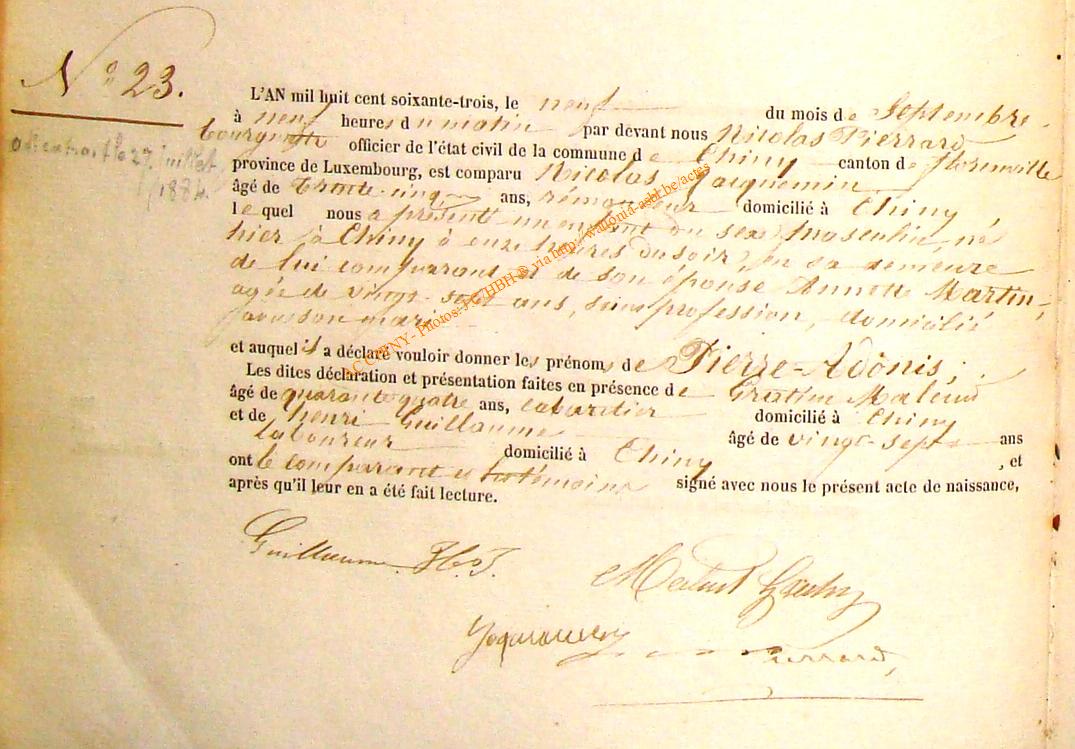 N° 23.
extrait le 27 juillet
1884.
L'AN mil huit cent soixante-trois, le neuf du mois de Septembre
à neuf heures du matin par devant nous Nicolas Pierrard
bourgmestre officier de l'état civil de la commune de Chiny canton de florenville
province de Luxembourg, est comparu Nicolas Jacquemin
âgé de trente-cinq ans, rémouleur domicilié à Chiny,
lequel nous a présenté un enfant du sexe masculin, né
hier à Chiny à onze heures du soir, en sa demeure
de lui comparant et de son épouse Annette Martin,
agée de vingt-sept ans, sans profession, domicilié
son mari
et auquel il a déclaré vouloir donner les prénoms de Pierre-Adonis;
Les dites déclaration et présentation faites en présence de
âgé de quarante quatre ans, cabaretier domicilié à Chiny
et de henri Guillaume âgé de vingt-sept ans
laboureur domicilié à Chiny, et
ont le comparant et témoins signé avec nous le présent acte de naissance,
après qu'il leur en a été fait lecture.
Guillaume
Jacquemin
Pierrard,
CHINY - Photos: J-G/HBH ® via http://wallonia-asbl.be/actes